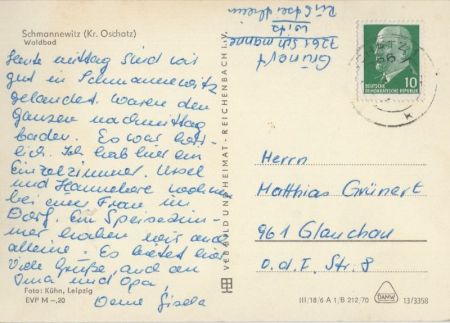 Schmannewitz (Kr. Oschatz)
Waldbad
Heute mittag sind wir
gut in Schmannewitz
gelandet. waren den
ganzen nachmittag
baden. Es war herr-
lich. Ich hab hier ein
Einzelzimmer. Ursel
und Hannelore wohnen
bei einer Frau im
Dorf. Ein Speisezim-
mer haben wir auch
alleine. Es bietet hier
Viele Grüße, auch an
Oma und Opa,
Deine Gisela
Foto: Kühn, Leipzig
EVP M –,20
VEB BILD UND HEIMAT · REICHENBACH I. V.
Grünert
7261 Schmanne
witz
DEUTSCHE
DEMOKRATISCHE REPUBLIK
10
Herrn
Matthias Grünert
961 Glauchau
O. d. F. Str. 8
III/18/6 A 1/B 212/70
DAMW
13/3358